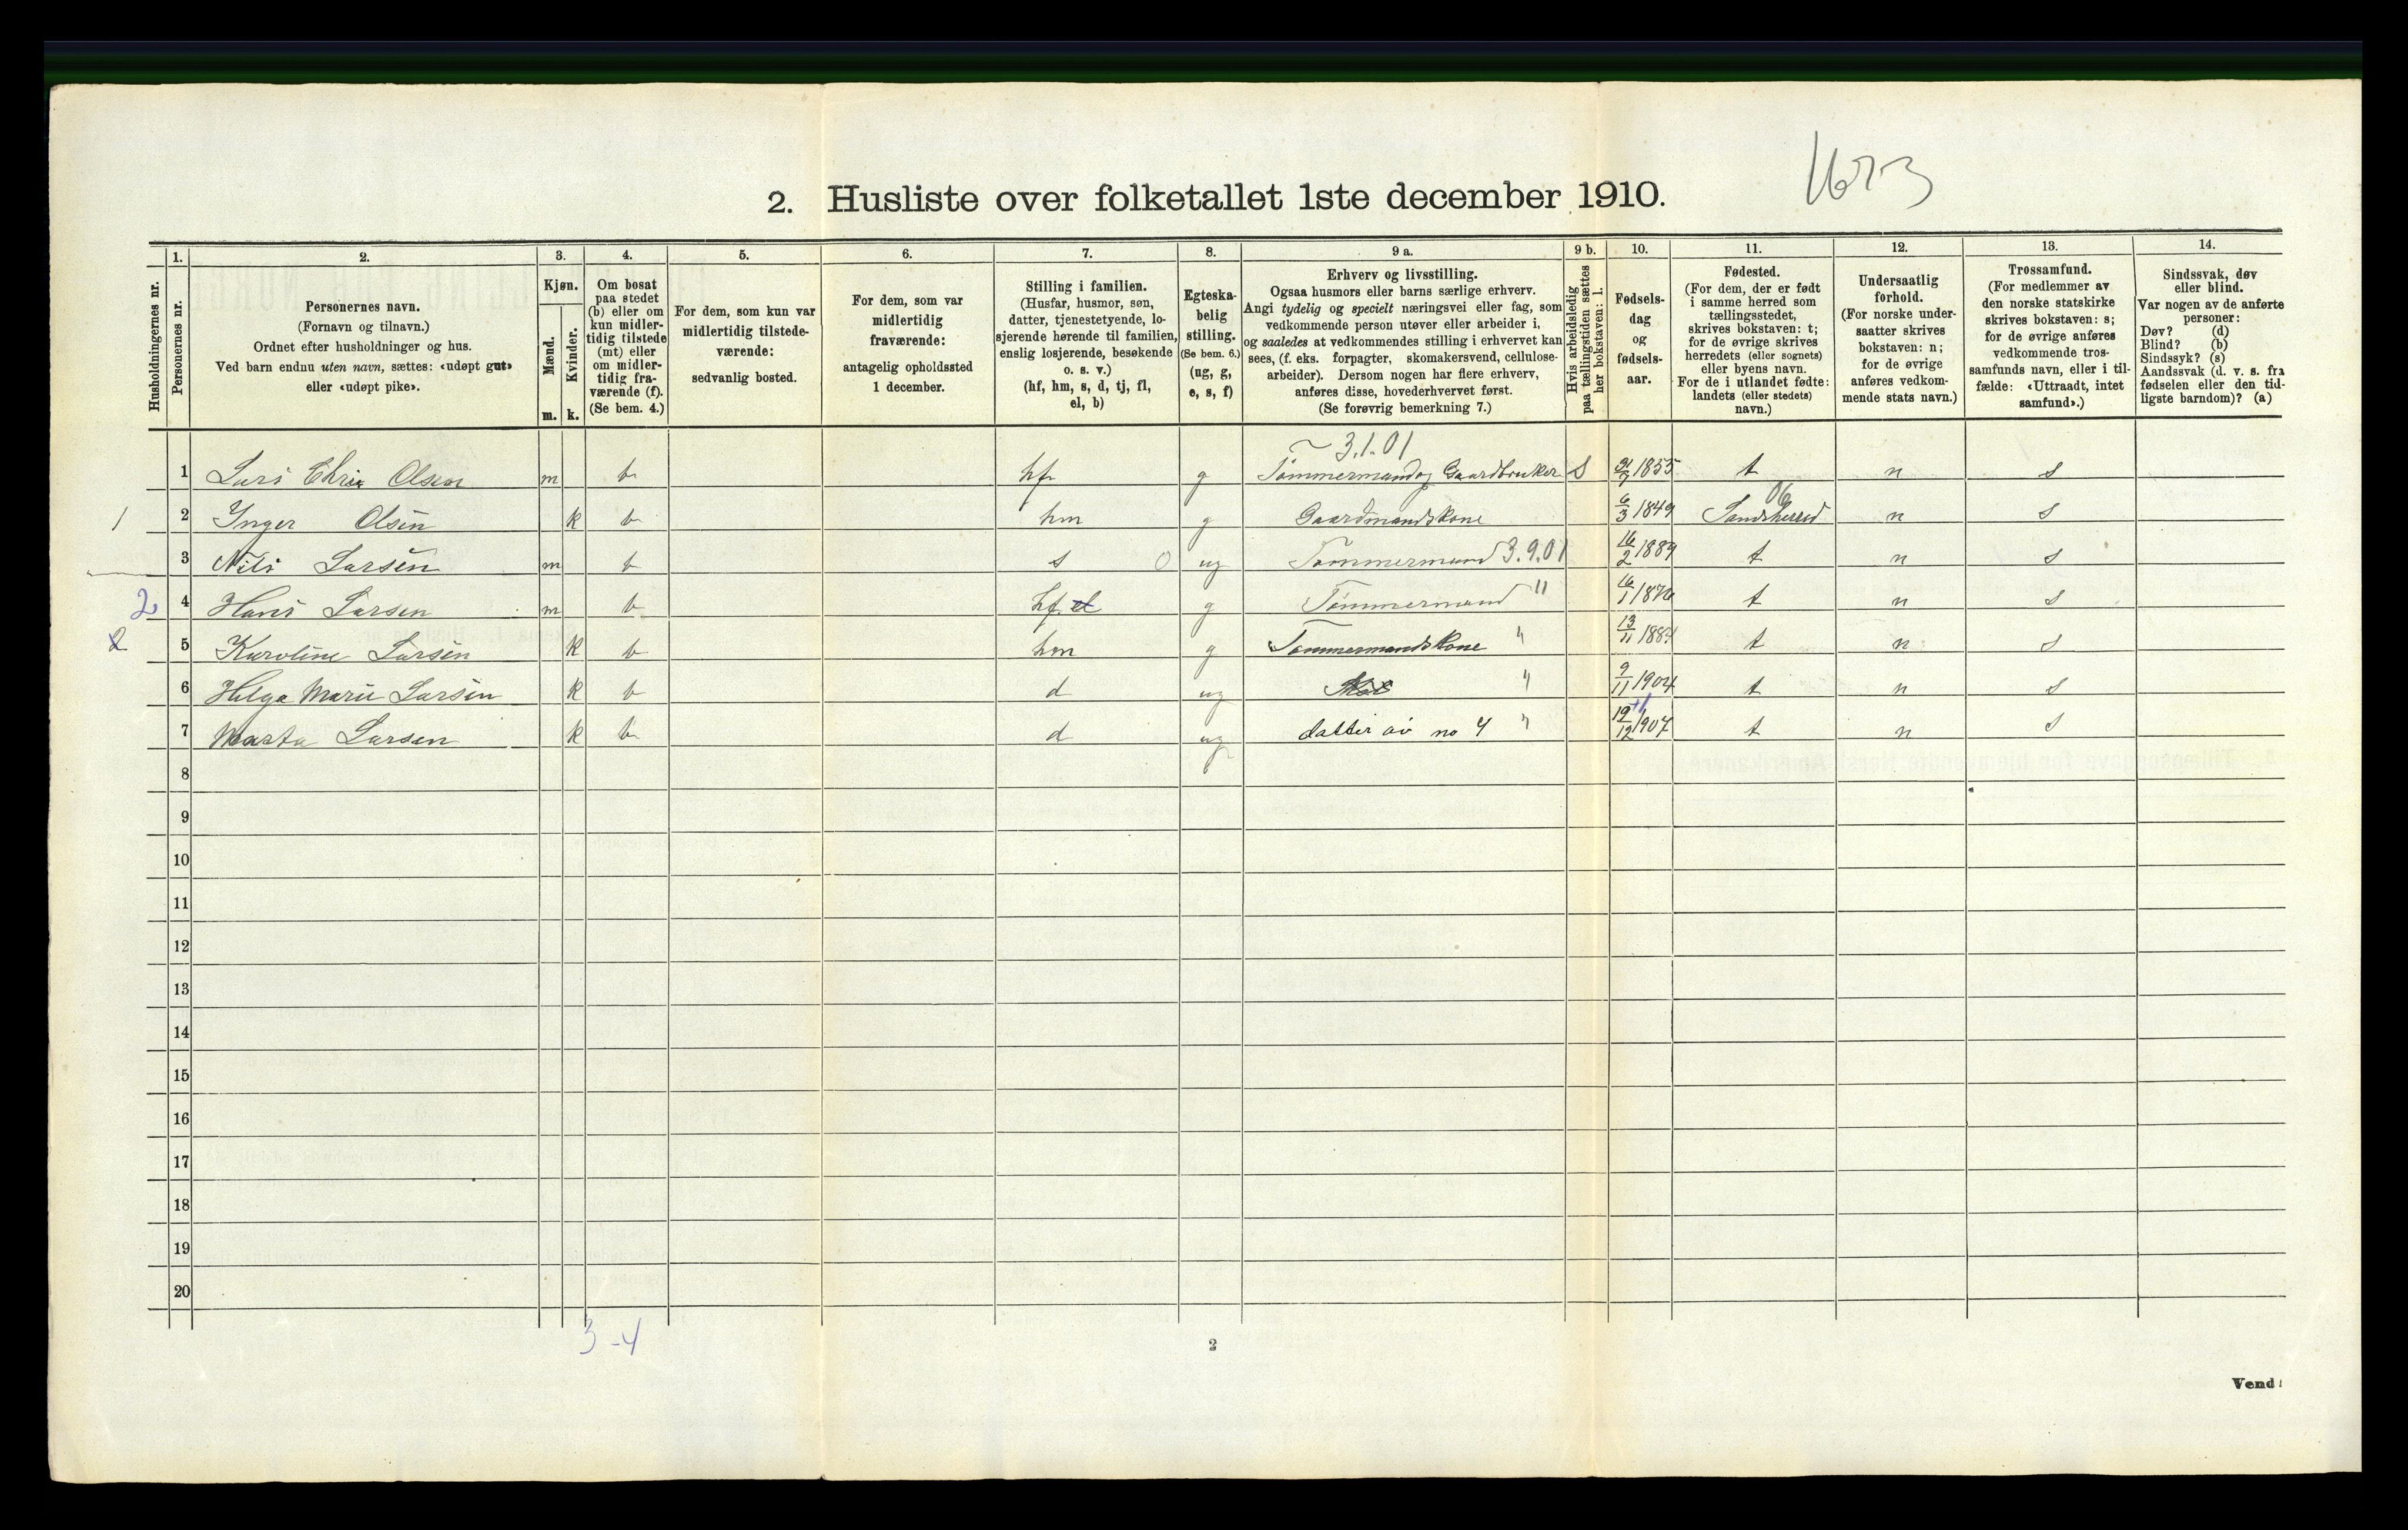 1673
2. Husliste over folketallet 1ste december 1910.
1. 2. 3. 4. 5. 6. 7. 8. 9 a. 9 b. 10. 11. 12. 13. 14.
Husholdningernes nr.
Personernes nr.
Personernes navn.
(Fornavn og tilnavn.)
Ordnet efter husholdninger og hus.
Ved barn endnu uten navn, sættes: «udøpt gut»
eller «udøpt pike».
Kjøn.
Mænd.
Kvinder.
m. k.
Om bosat
paa stedet
(b) eller om
kun midler-
tidig tilstede
(mt) eller
om midler-
tidig fra-
værende (f).
(Se bem. 4.)
For dem, som kun var
midlertidig tilstede-
værende:
sedvanlig bosted.
For dem, som var
midlertidig
fraværende:
antagelig opholdssted
1 december.
Stilling i familien.
(Husfar, husmor, søn,
datter, tjenestetyende, lo-
sjerende hørende til familien,
enslig losjerende, besøkende
o. s. v.)
(hf, hm, s, d, tj, fl,
el, b)
Egteska-
belig
stilling.
(Se bem. 6.)
(ug, g,
e, s, f)
Erhverv og livsstilling.
Ogsaa husmors eller barns særlige erhverv.
Angi tydelig og specielt næringsvei eller fag, som
vedkommende person utøver eller arbeider i,
og saaledes at vedkommendes stilling i erhvervet kan
sees, (f. eks. forpagter, skomakersvend, cellulose-
arbeider). Dersom nogen har flere erhverv,
anføres disse, hovederhvervet først.
(Se forøvrig bemerkning 7.)
Hvis arbeidsledig
paa tællingstiden sættes
her bokstaven: l.
Fødsels-
dag
og
fødsels-
aar.
Fødested.
(For dem, der er født
i samme herred som
tællingsstedet,
skrives bokstaven: t;
for de øvrige skrives
herredets (eller sognets)
eller byens navn.
For de i utlandet fødte:
landets (eller stedets)
navn.)
Undersaatlig
forhold.
(For norske under-
saatter skrives
bokstaven: n;
for de øvrige
anføres vedkom-
mende stats navn.)
Trossamfund.
(For medlemmer av
den norske statskirke
skrives bokstaven: s;
for de øvrige anføres
vedkommende tros-
samfunds navn, eller i til-
fælde: «Uttraadt, intet
samfund».)
Sindssvak, døv
eller blind.
Var nogen av de anførte
personer:
Døv? (d)
Blind? (b)
Sindssyk? (s)
Aandssvak (d. v. s. fra
fødselen eller den tid-
ligste barndom)? (a)
3.1.01
1 Lars Chris Olsen m b hf g Tømmermand og Gaardbruker S 1855 t n s
1 2 Inger Olsen k b hm g Gaardmandskone 6/3 1849 Sandsherred 06 n s
3 Nils Larsen m b s 0 ug Tømmermand 3.9.01 16/2 1889 t n s
2 4 Hans Larsen m b hf el g Tømmermand " t n s
2 5 Karoline Larsen k b hm g Tømmermandskone " 13/11 1884 t n s
6 Helga Marie Larsen k b d ug " 9/11 1904 t n s
7 Marta Larsen k b d ug datter av no 4 " 19/12 1907 t n s
8
9
10
11
12
13
14
15
16
17
18
19
20
3-4
2
Vend!